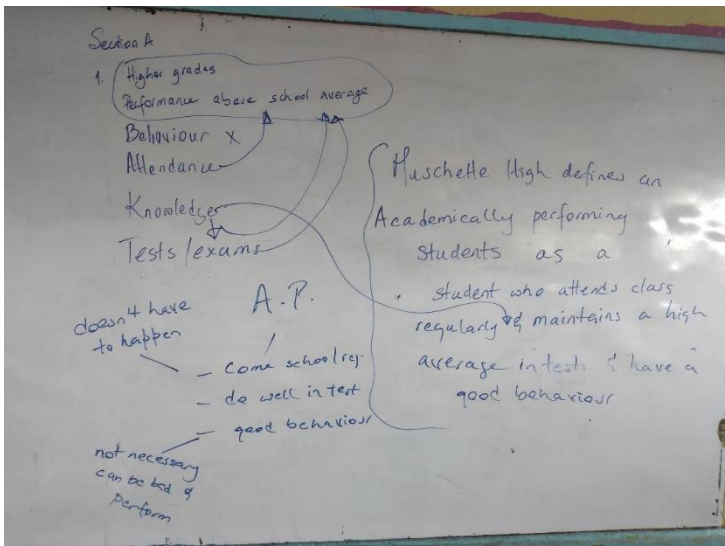 Section A
1. Higher grades
Performance above school average
Behaviour x
Attendance
Knowledge
Tests/exams
A.P.
doesn't have
to happen
- Come school reg.
- do well in test
- good behaviour
not necessary
can be bad &
perform
Muschette High defines an
Academically performing
Students as a
student who attends class
regularly & maintains a high
average in tests & have a
good behaviour